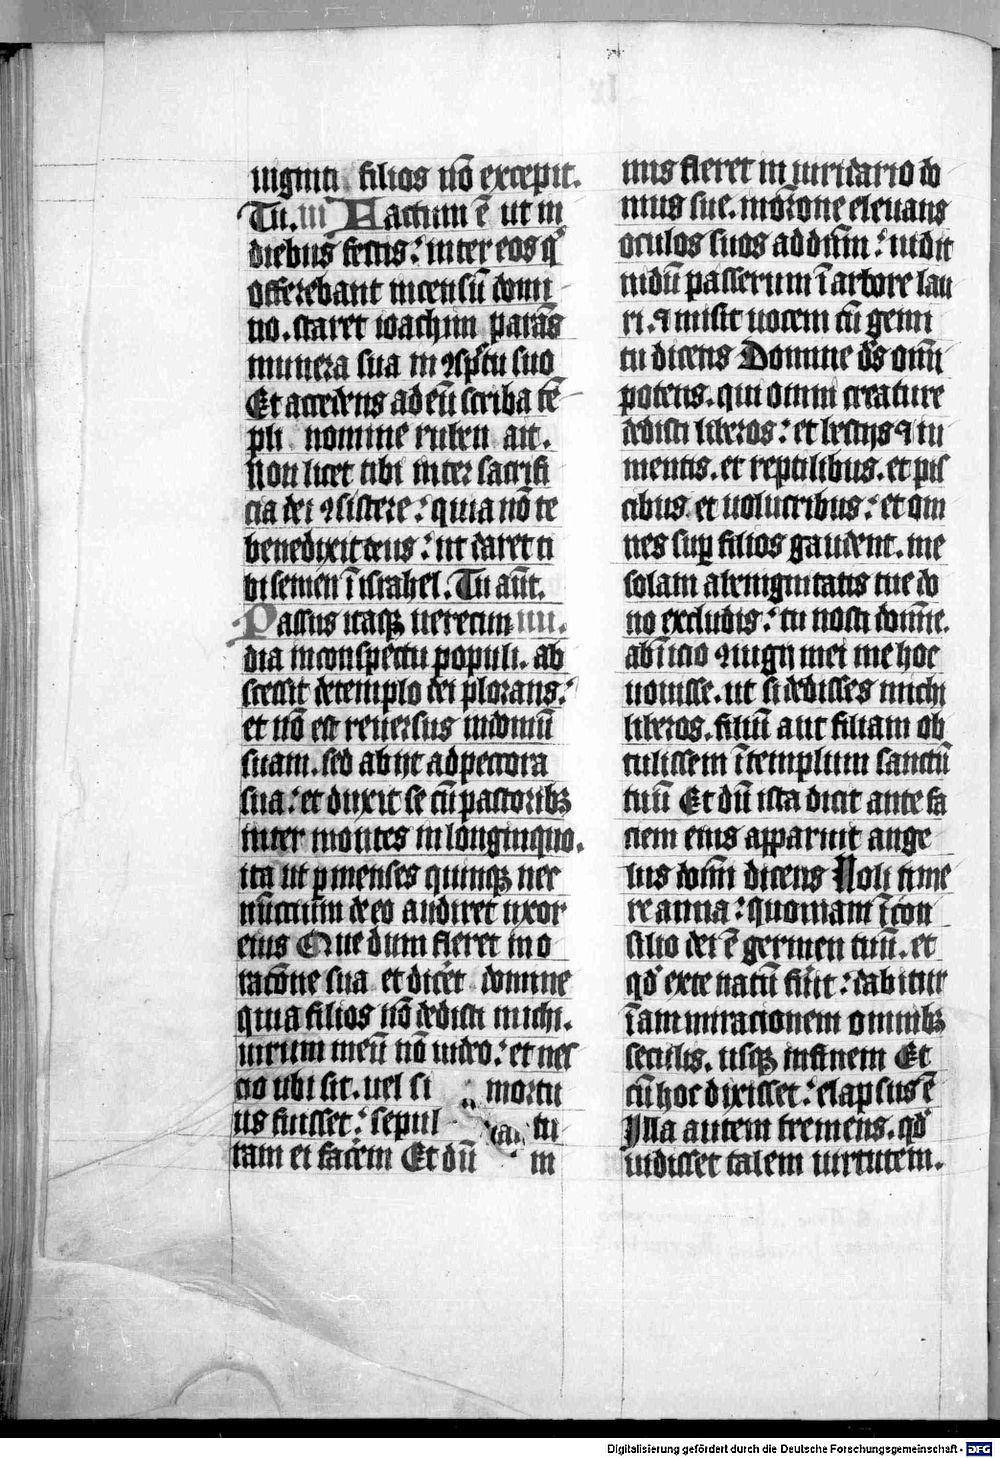 uiginti filios nō excepit.
Tu. iii Factum ē ut in
diebus festis: inter eos qͥ
offerebant incensū domi
no. staret ioachim parās
munera sua in ꝯspctū suo
Et accedens ad eū scriba tē
pli nomine ruben ait.
Non licet tibi inter sacrifi
cia dei ꝯsistere: quia nō te
benedixit deus: ut daret ti
bi semen ī israhel. Tu aūt.
Passus itaqꝫ uerecun iiii.
dia in conspectu populi. ab
scessit de templo dei plorans:
et nō est reuersus in domū
suam. sed abijt ad peccora
sua: et duxit se cū pastoribꝫ
inter montes in longinquo.
ita ut ꝑ menses quinqꝫ nec
nūctium de eo audiret uxor
eius Que dum fleret in o
racōne sua et dicēt domine
quia filios nō dedisti michi.
uirum meū nō uideo: et nes
cio ubi sit. uel si mortu
us fuisset: sepul tu
ram ei facēm Et dū in
mis fleret in uiridario do
mus sue. in orōne eleuans
oculos suos ad dnm: uidit
nidū passerum ī arbore lau
ri. ⁊ misit uocem cū gemi
tu dicens Domine ds omī
potens. qui omni creature
dedisti liberos: et bestijs ⁊ iu
mentis. et reptilibus. et pis
cibus et uolucribus: et om
nes suꝑ filios gaudent. me
solam a benignitatis tue do
no excludis: tu nosti domīe.
ab īnicio ꝯiugij mei me hoc
uouisse. ut si dedisses michi
liberos. filiū aut filiam ob
tulissem ī templum sanctū
tuū Et dū ista dicit ante fa
ciem eius apparuit ange
lus domī dicens Noli time
re anna: quoniam ī con
silio dei ē germen tuū. et
qd exte natū fūit: dabitur
ī ammiracionem omnibꝫ
seculis. usqꝫ in finem Et
cū hoc dixisset: elapsus ē
Illa autem tremens. qd
uidisset talem uirtutem.
Digitalisierung gefördert durch die Deutsche Forschungsgemeinschaft - DFG